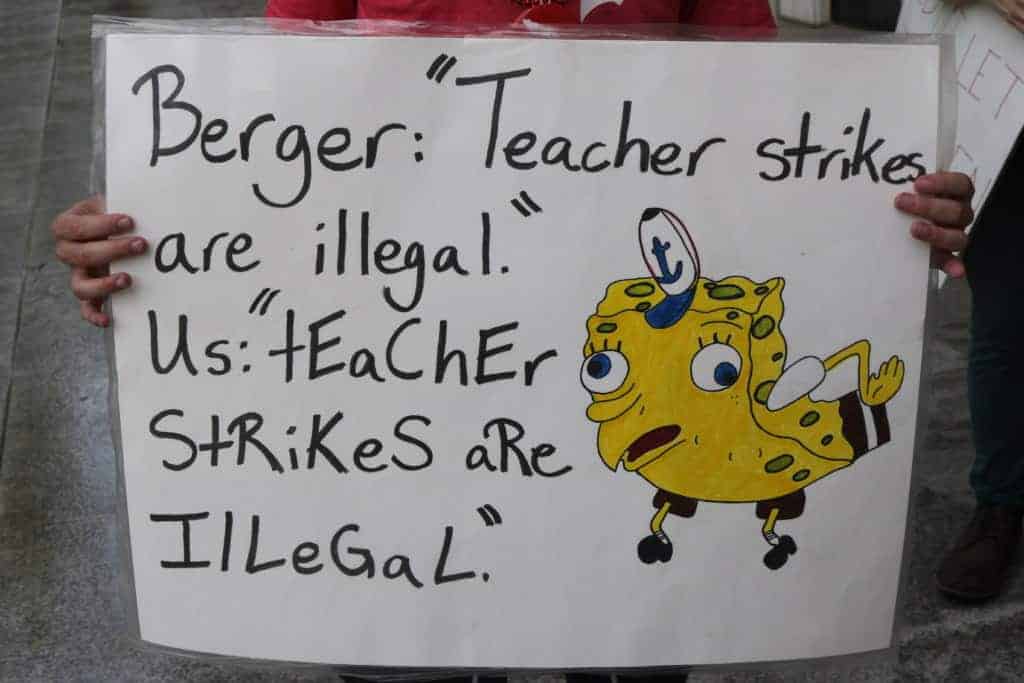 Berger: "Teacher strikes
are illegal."
Us: "tEaChEr
StRiKeS aRe
IlLeGaL."
LET